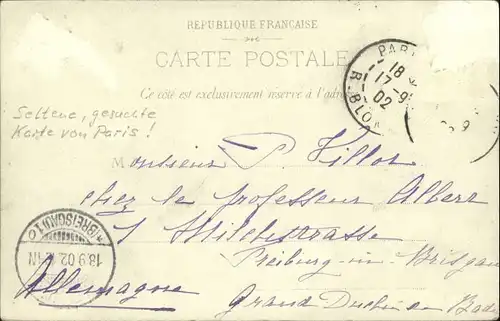 RÉPUBLIQUE FRANÇAISE
CARTE POSTALE
Ce côté est exclusivement réservé à l'adre
PARI
18
17 -9
02
R. BLO
9
Seltene, gesuchte
Karte von Paris!
Monsieur P. Villot
chez le professeur Albert
1 Milchstrasse
Freiburg-in-Brisgau
Allemagne
Grand Duché de Bade
(BREISGAU) 1
18.9.02. N